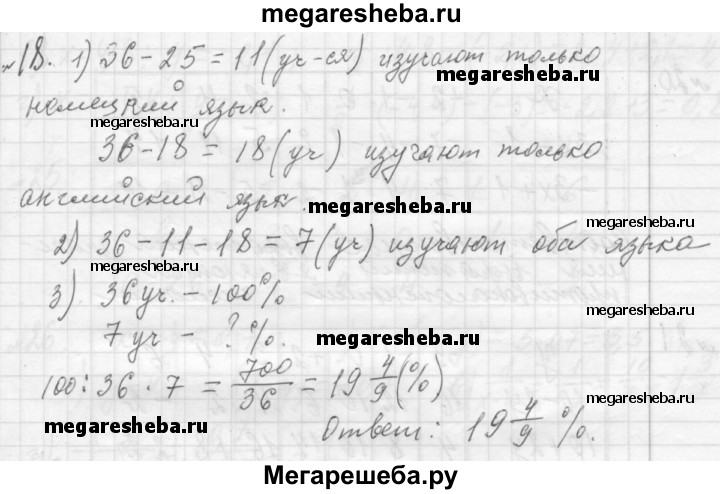 megaresheba.ru
№18. 1) 36 - 25 = 11 (уч-ся) изучают только
megaresheba.ru
немецкий язык.
megaresheba.ru
36 - 18 = 18 (уч) изучают только
английский язык.
megaresheba.ru
megaresheba.ru
2) 36 - 11 - 18 = 7 (уч) изучают оба языка
megaresheba.ru
3) 36 уч. - 100%
7 уч - ? %.
megaresheba.ru
100 : 36 · 7 = 700/36 = 19 4/9 (%)
megaresheba.ru
megaresheba.ru
Ответ: 19 4/9 %.
Мегарешеба.ру